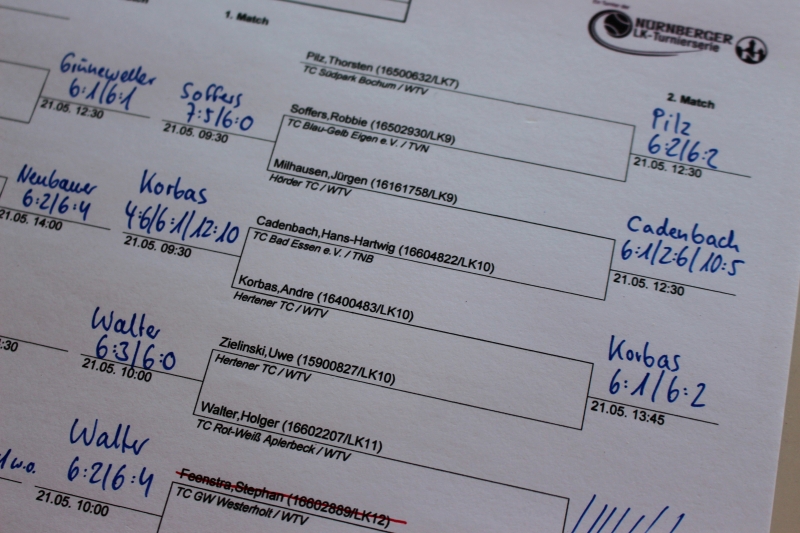 1. Match
Ein Turnier der
NÜRNBERGER
LK-Turnierserie
Pilz,Thorsten (16500632/LK7)
TC Südpark Bochum / WTV
2. Match
Grüneweller
6:1/6:1
21.05. 12:30
Soffers
7:5/6:0
21.05. 09:30
Soffers,Robbie (16502930/LK9)
TC Blau-Gelb Eigen e.V. / TVN
Pilz
6:2/6:2
21.05. 12:30
Milhausen,Jürgen (16161758/LK9)
Hörder TC / WTV
Neubauer
6:2/6:4
21.05. 14:00
Korbas
4:6/6:1/12:10
21.05. 09:30
Cadenbach,Hans-Hartwig (16604822/LK10)
TC Bad Essen e.V. / TNB
Cadenbach
6:1/2:6/10:5
21.05. 12:30
Korbas,Andre (16400483/LK10)
Hertener TC / WTV
Walter
6:3/6:0
21.05. 10:00
:30
Zielinski,Uwe (15900827/LK10)
Hertener TC / WTV
Korbas
6:1/6:2
21.05. 13:45
Walter,Holger (16602207/LK11)
TC Rot-Weiß Aplerbeck / WTV
w.o.
Walter
6:2/6:4
21.05. 10:00
Feenstra,Stephan (16602889/LK12)
TC GW Westerholt / WTV